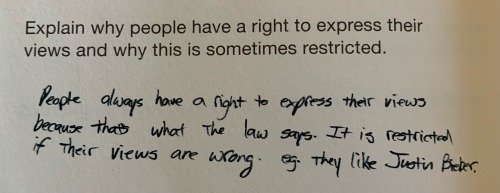 Explain why people have a right to express their
views and why this is sometimes restricted.
People always have a right to express their views
because thats what the law says. It is restricted
if their views are wrong. eg. they like Justin Bieber.